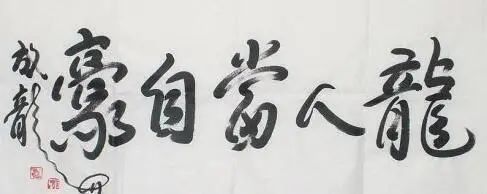 龍人當自豪
放龍